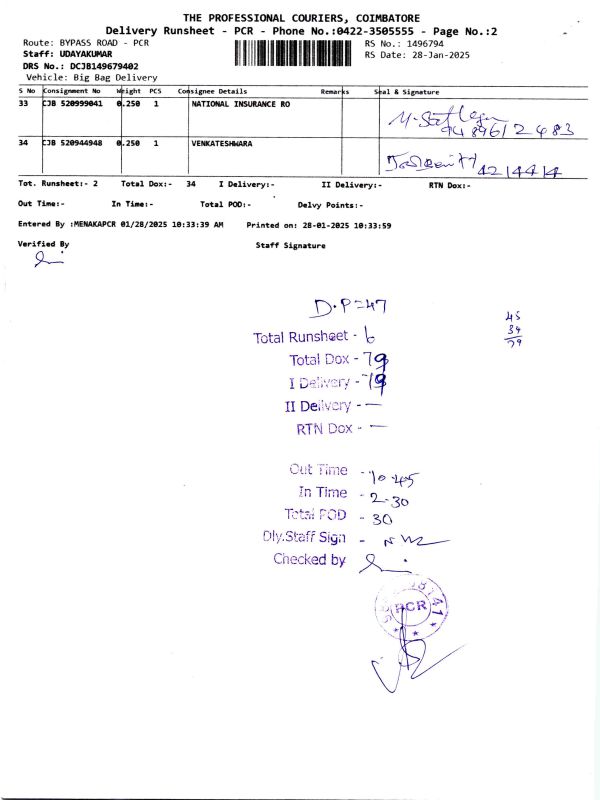 THE PROFESSIONAL COURIERS, COIMBATORE
Delivery Runsheet - PCR - Phone No.:0422-3505555 - Page No.:2
Route: BYPASS ROAD - PCR RS No.: 1496794
Staff: UDAYAKUMAR RS Date: 28-Jan-2025
DRS No.: DCJB149679402
Vehicle: Big Bag Delivery
S No Consignment No Weight PCS Consignee Details Remarks Seal & Signature
33 CJB 520999041 0.250 1 NATIONAL INSURANCE RO
9489612483
34 CJB 520944948 0.250 1 VENKATESHWARA
4214414
Tot. Runsheet:- 2 Total Dox:- 34 I Delivery:- II Delivery:- RTN Dox:-
Out Time:- In Time:- Total POD:- Delvy Points:-
Entered By :MENAKAPCR 01/28/2025 10:33:39 AM Printed on: 28-01-2025 10:33:59
Verified By Staff Signature
D.P=47
45
34
79
Total Runsheet - 6
Total Dox - 79
I Delivery - 79
II Delivery - —
RTN Dox - —
Out Time - 10.45
In Time - 2-30
Total POD - 30
Dly.Staff Sign -
Checked by
PCR